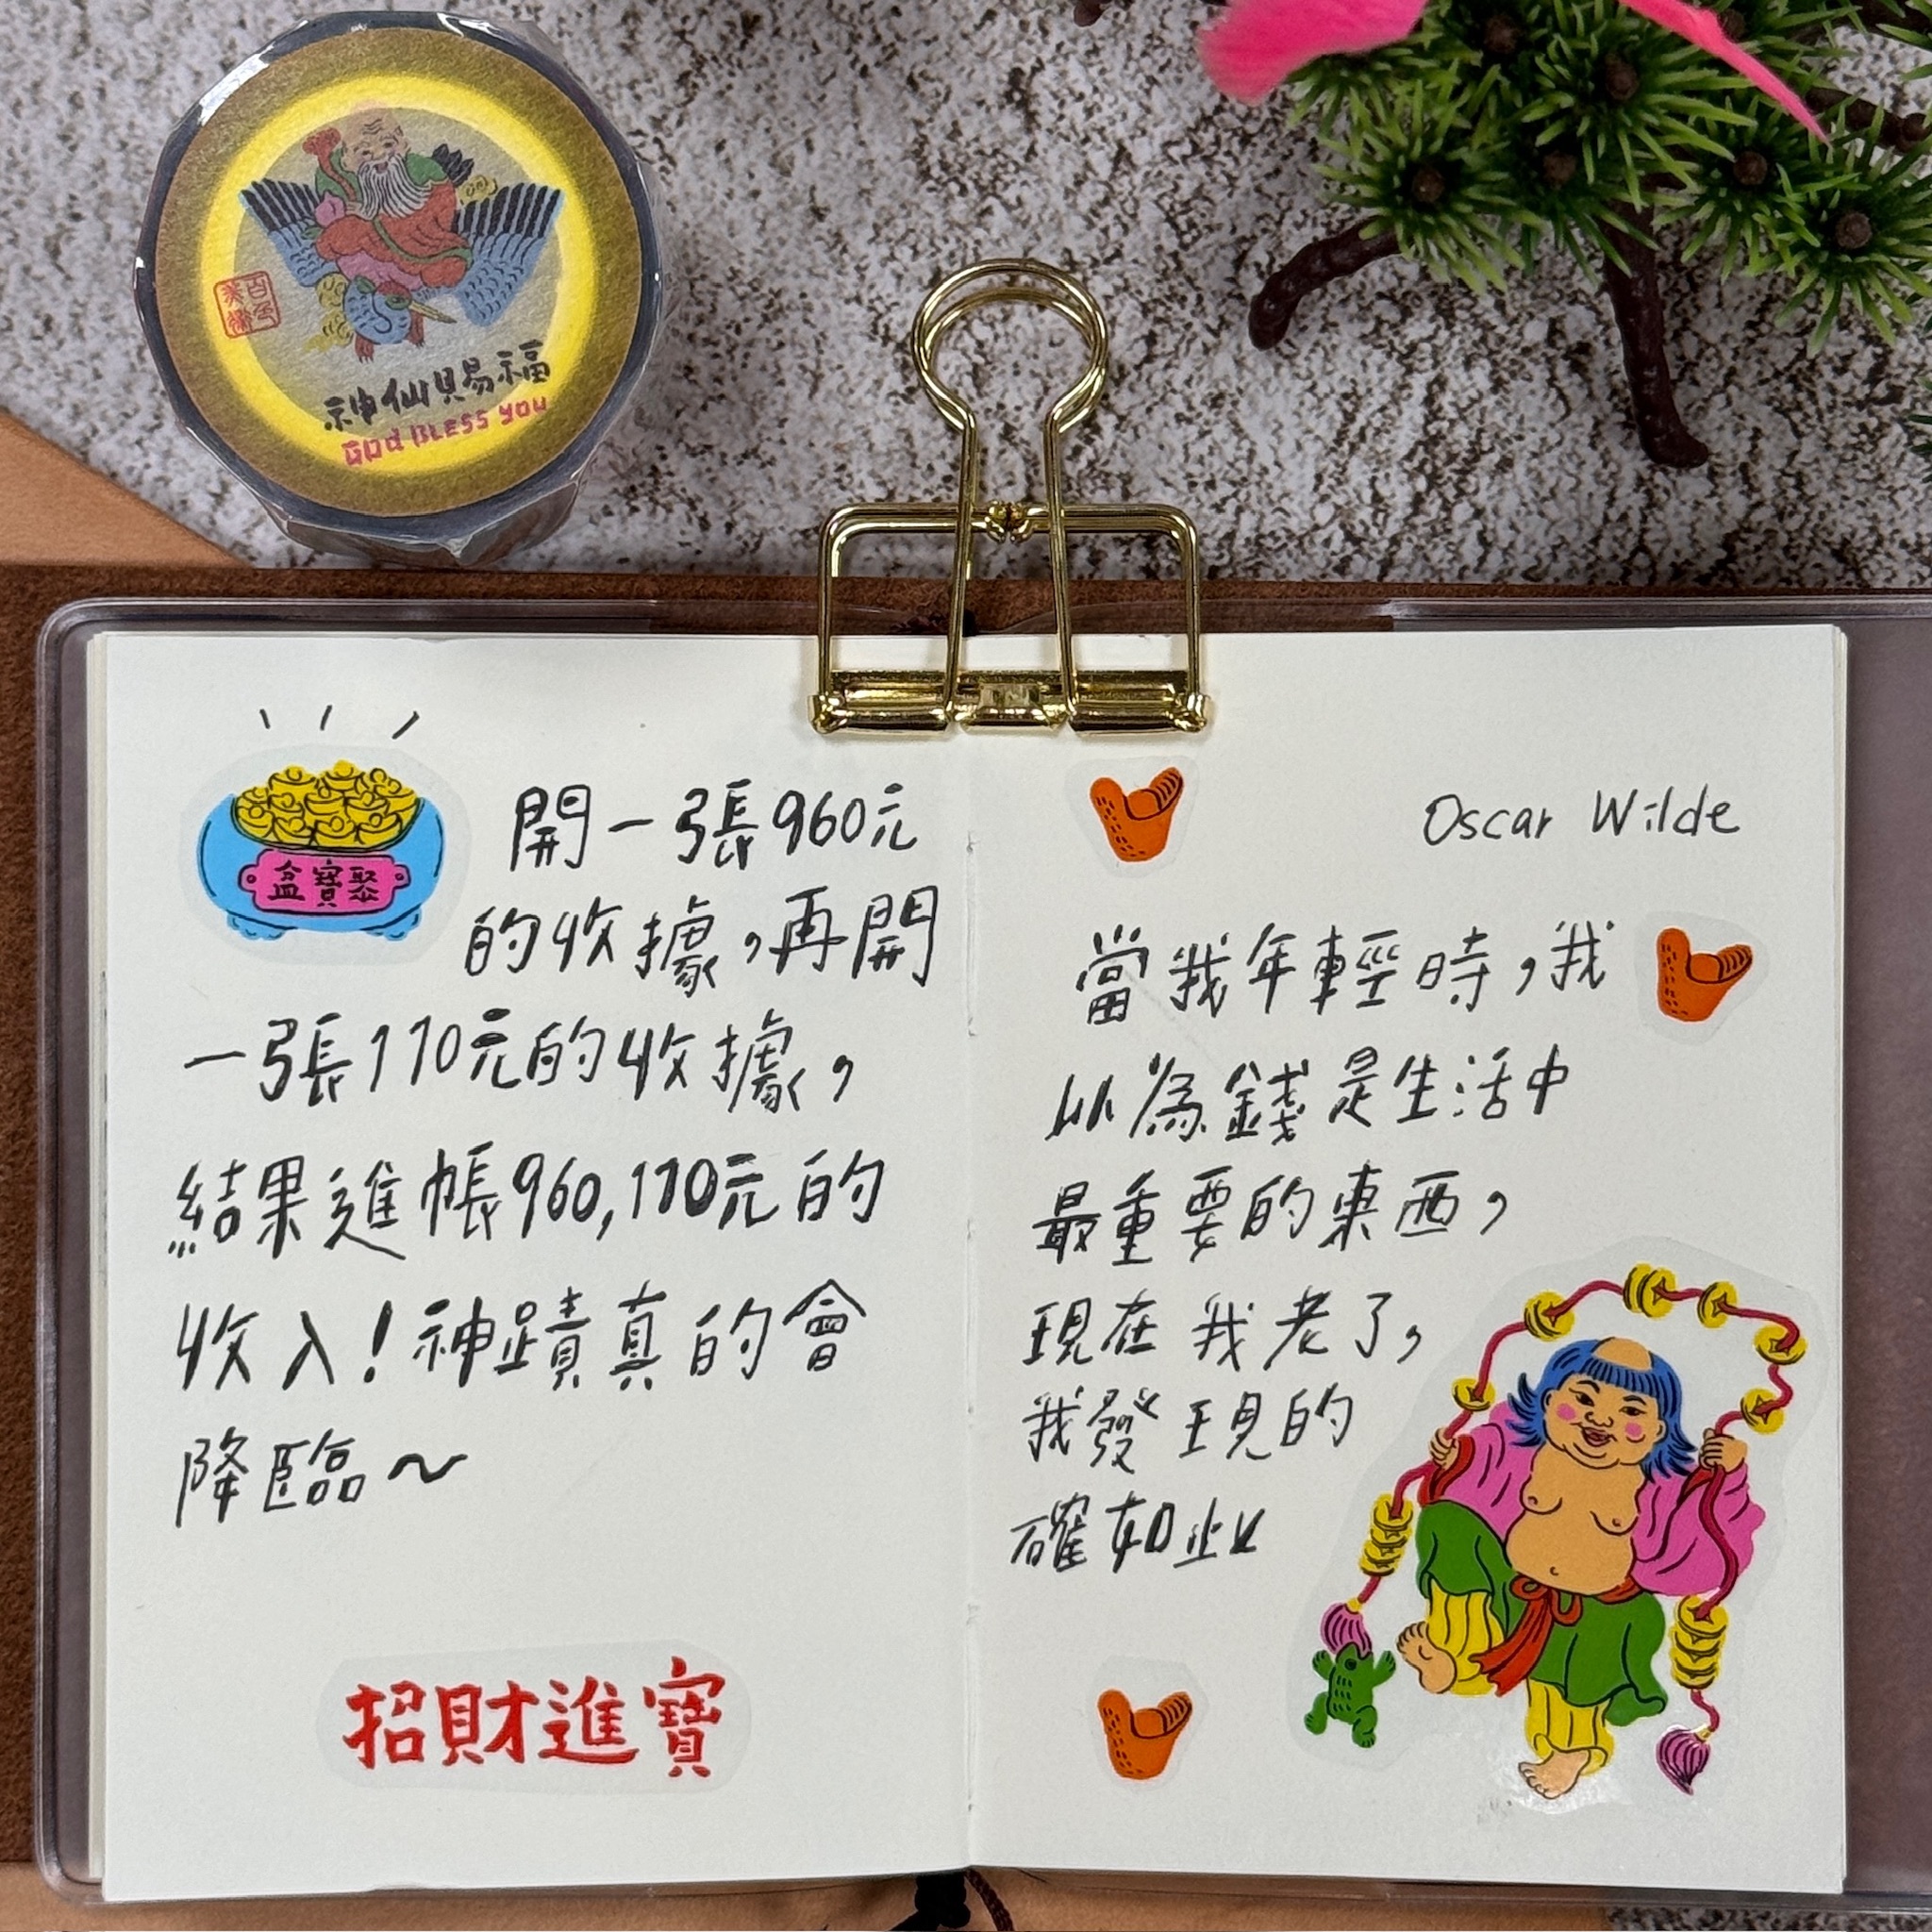 百年
美術
神仙賜福
GOD BLESS YOU
盆寶聚
開一張960元
的收據，再開
一張110元的收據，
結果進帳960,110元的
收入！神蹟真的會
降臨～
招財進寶
Oscar Wilde
當我年輕時，我
以為錢是生活中
最重要的東西，
現在我老了，
我發現的
確如此